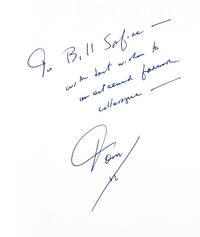 To Bill Safire —
with best wishes to
an esteemed former
colleague —